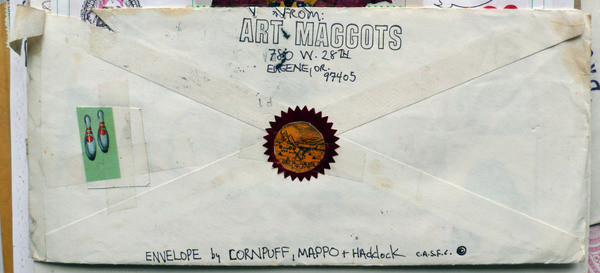 FROM:
ART MAGGOTS
780 W. 28TH
EUGENE, OR.
97405
ENVELOPE by CORNPUFF, MAPPO + HAddock C.A.S.F.C. ©